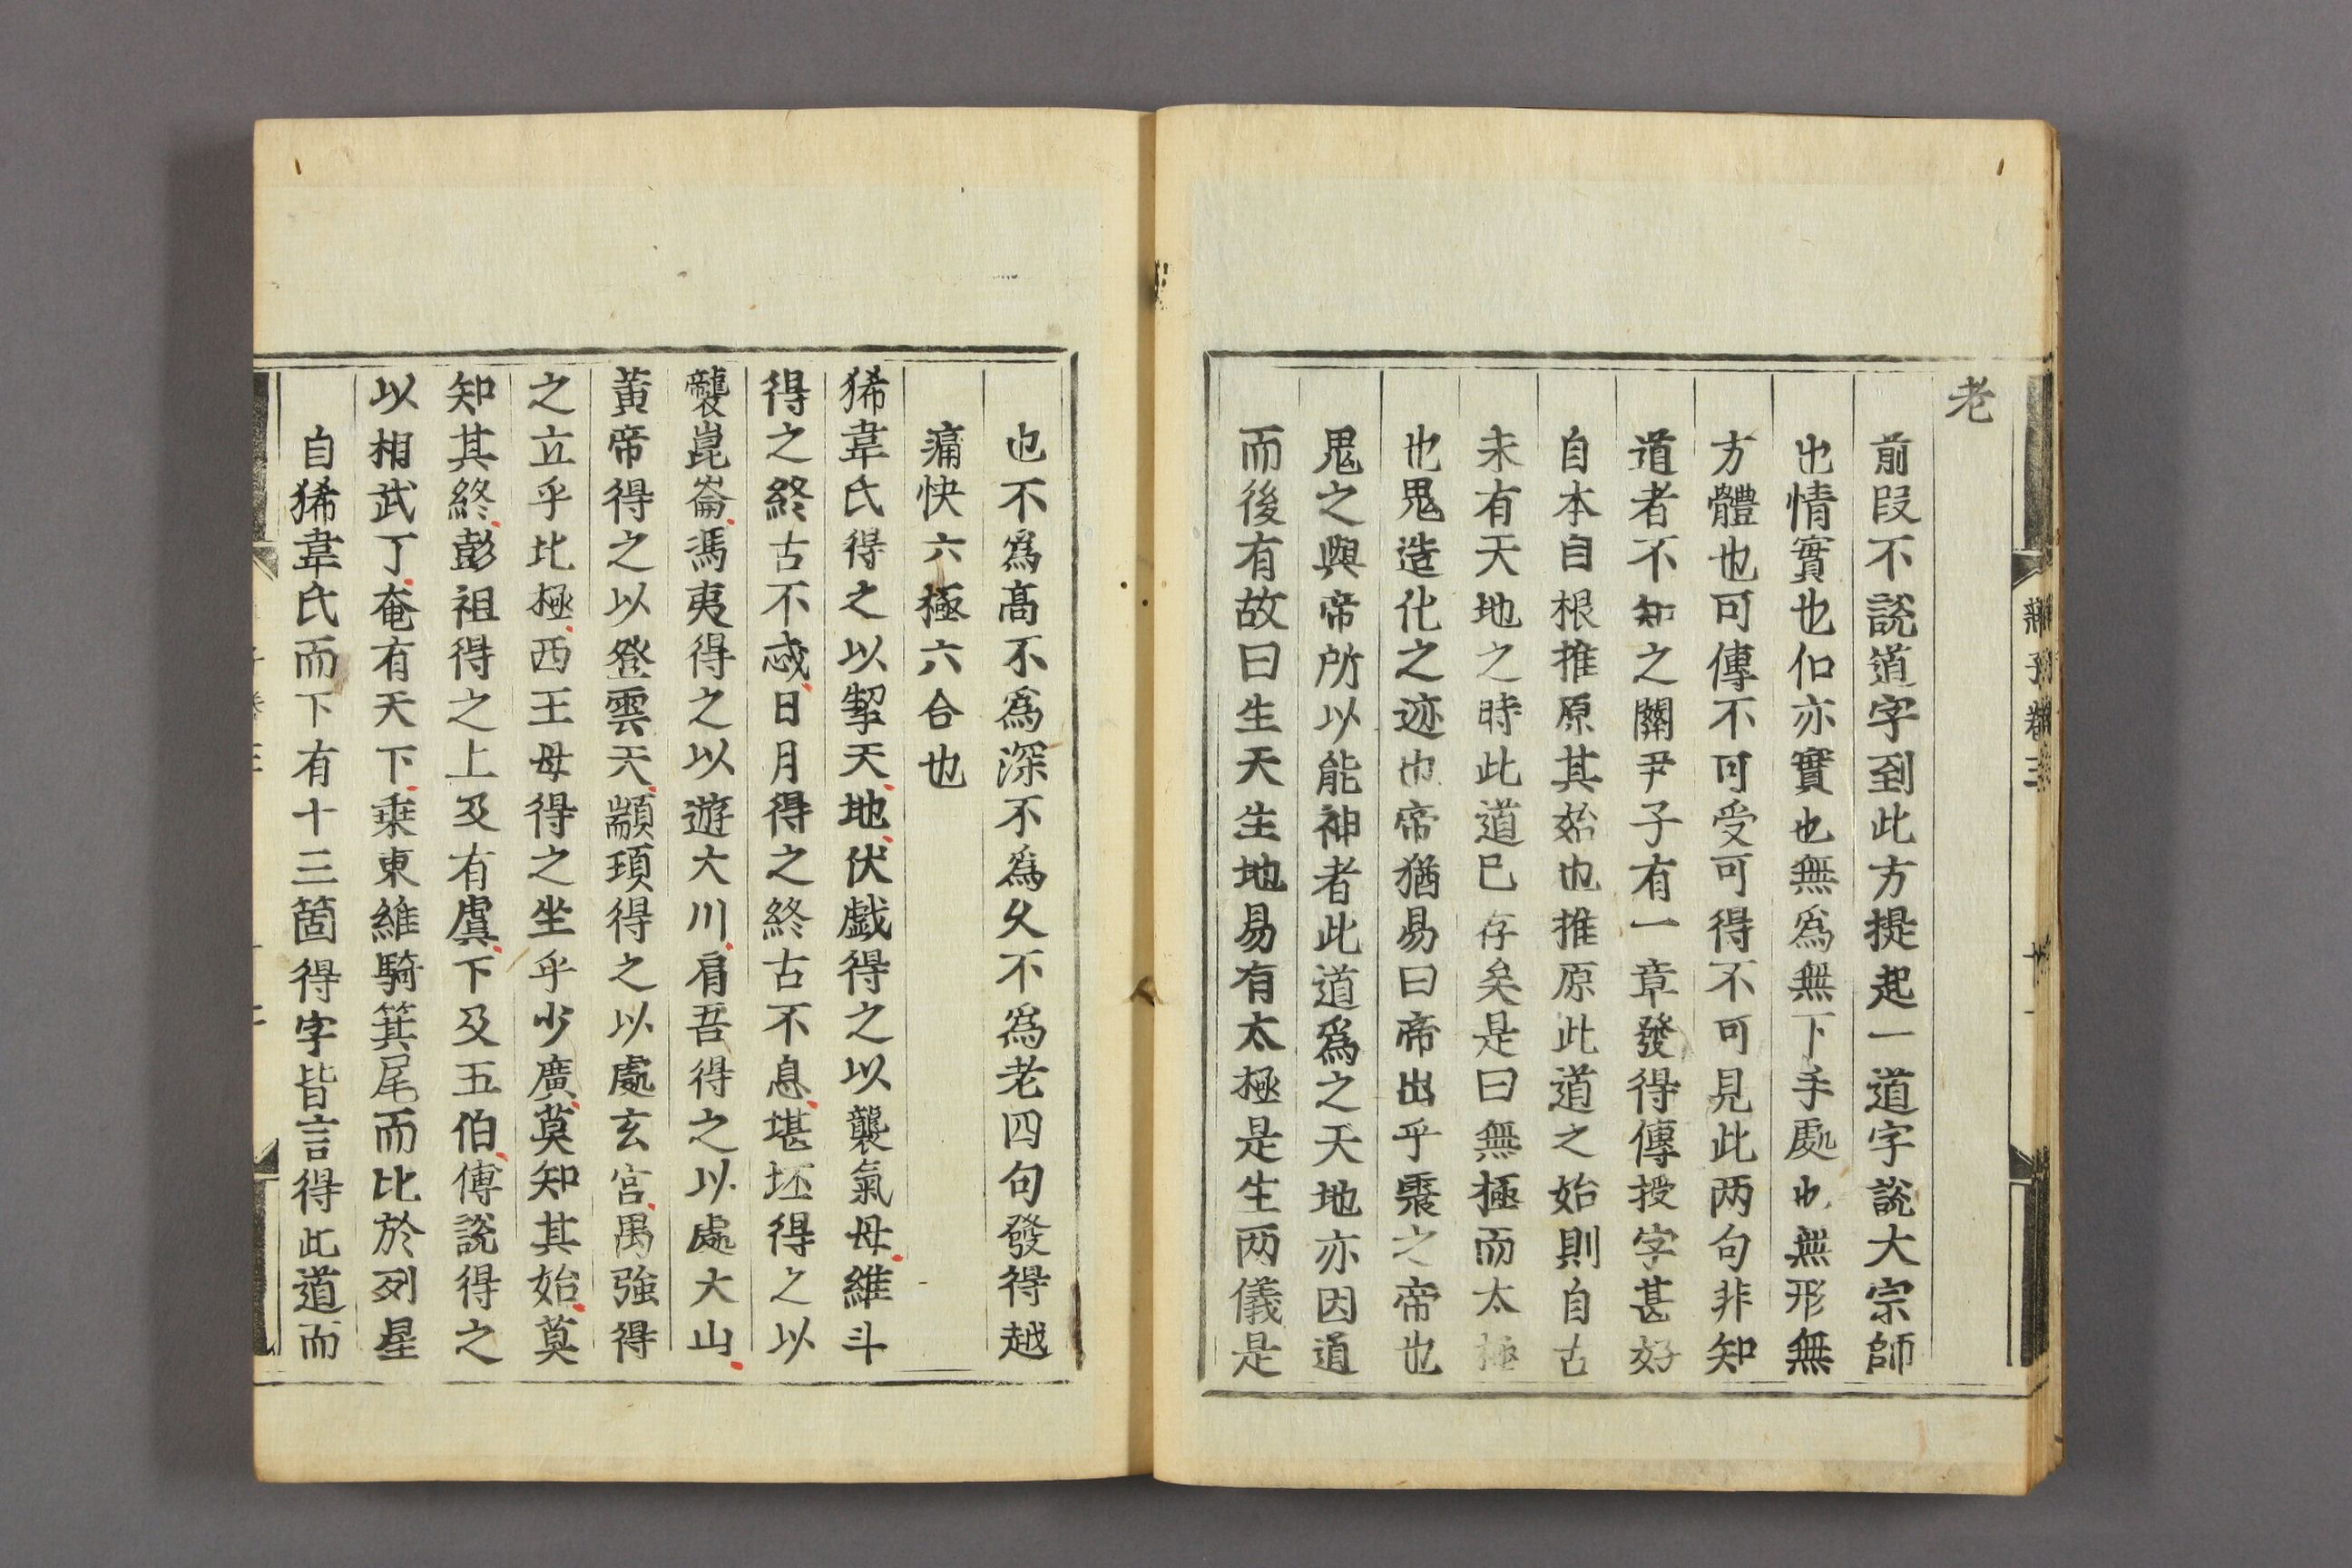 老
前段不說道字到此方提起一道字說大宗師
也情實也仁亦實也無爲無下手處也無形無
方體也可傳不可受可得不可見此两句非知
道者不知之關尹子有一章發得傳授字甚好
自本自根推原其始也推原此道之始則自古
未有天地之時此道已存矣是曰無極而太極
也鬼造化之迹也帝猶易曰帝出乎震之帝也
鬼之與帝所以能神者此道爲之天地亦因道
而後有故曰生天生地易有太極是生两儀是
也不爲高不爲深不爲久不爲老四句發得越
痛快六極六合也
狶韋氏得之以挈天地伏戯得之以襲氣母維斗
得之終古不忒日月得之終古不息堪坯得之以
襲崑崙馮夷得之以遊大川肩吾得之以處大山
黃帝得之以登雲天顓頊得之以處玄宮禺強得
之立乎北極西王母得之坐乎少廣莫知其始莫
知其終彭祖得之上及有虞下及五伯傅說得之
以相武丁奄有天下乗東維騎箕尾而比於列星
自狶韋氏而下有十三箇得字皆言得此道而